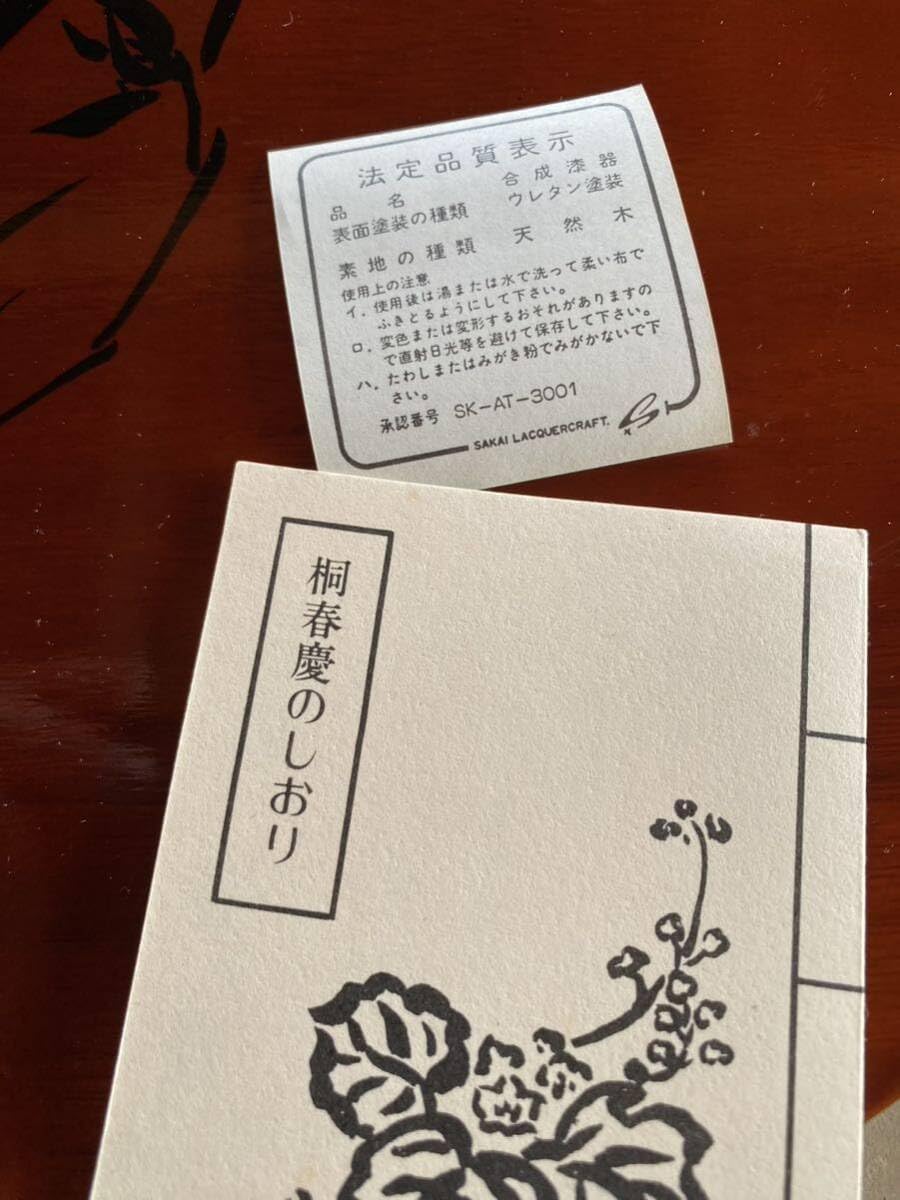 法定品質表示
品名 合成漆器
表面塗装の種類 ウレタン塗装
素地の種類 天然木
使用上の注意
イ. 使用後は湯または水で洗って柔い布で
ふきとるようにして下さい。
ロ. 変色または変形するおそれがありますの
で直射日光等を避けて保存して下さい。
ハ. たわしまたはみがき粉でみがかないで下
さい。
承認番号 SK-AT-3001
SAKAI LACQUERCRAFT.
桐春慶のしおり